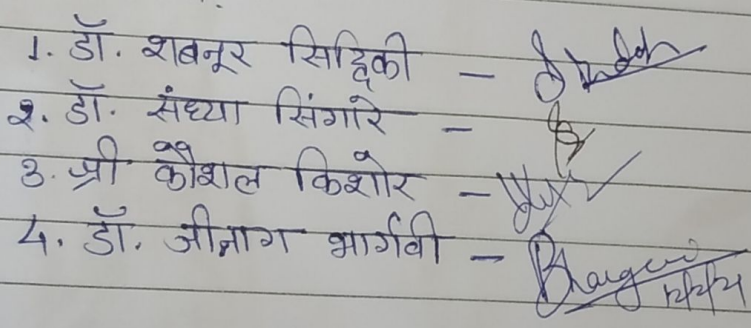 1. डॉ. शबनूर सिद्दिकी -
२. डॉ. संध्या सिंगारे -
3. श्री कौशल किशोर -
4. डॉ. जीनाग भार्गवी - Bhargavi